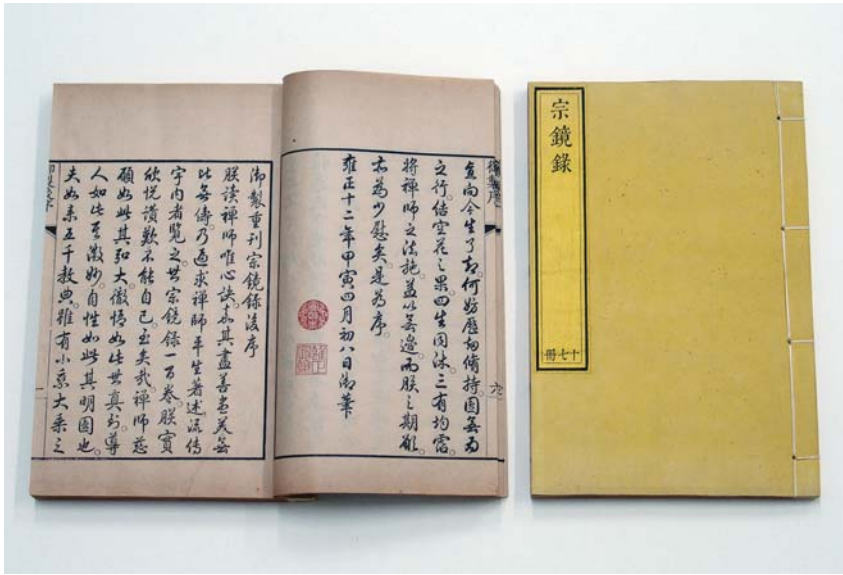 宗鏡錄
十七冊
御製序
六
直向今生了却。何妨歷劫脩持。圓無為
之行。結空花之果。四生同沐。三有均霑。
將禪師之法施。益以無邊。而朕之期願。
亦為少慰矣。是為序。
雍正十二年甲寅四月初八日御筆
御製重刊宗鏡錄後序
朕讀禪師唯心訣。知其盡善盡美。無
比無儔。乃遍求禪師平生著述。流傳
宇內者覽之。其宗鏡錄一百卷。朕實
欣悅讚歎。不能自已。至矣哉。禪師慈
願如此其弘大。徹悟如此其真到。導
人如此其微妙。自性如此其明圓也。
夫如來五千教典。雖有小乘大乘之